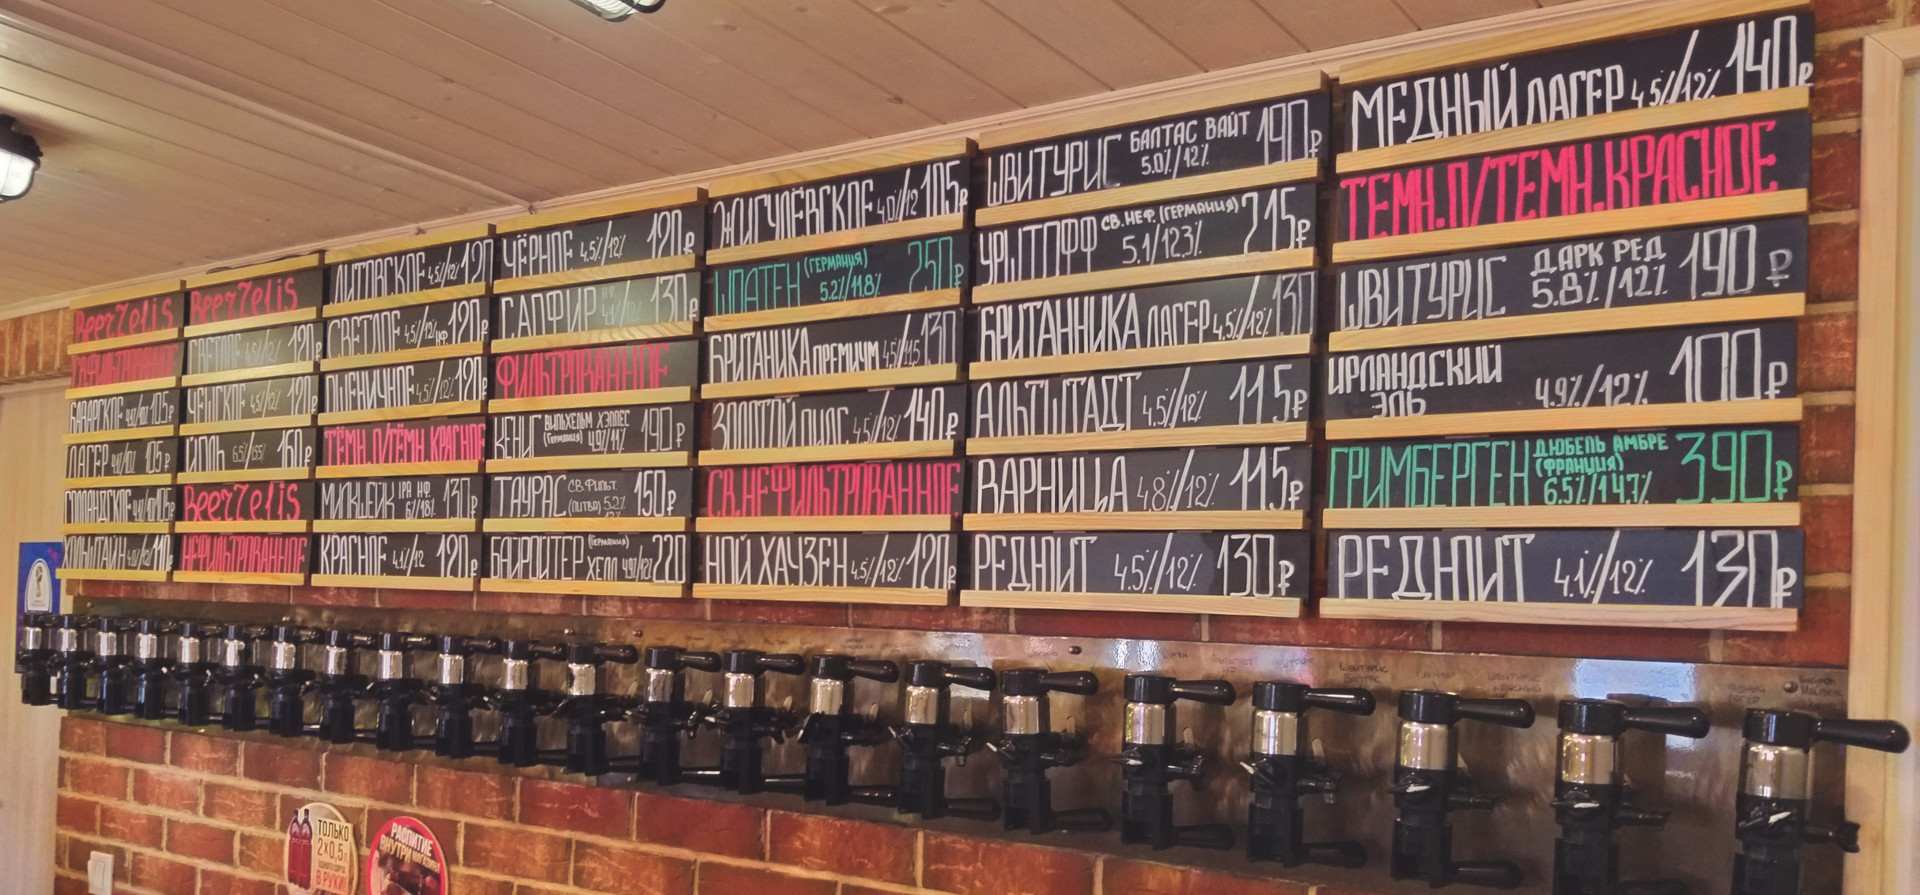 BeerZelis
БАВАРСКОЕ
ЛАГЕР 105₽
BeerZelis
СВЕТЛОЕ 4,5/12% 120₽
ЧЕШСКОЕ 4,5/12% 120₽
ЙОЛЬ 160₽
BeerZelis
НЕФИЛЬТРОВАННОЕ
ЛИТОВСКОЕ 4,5%/12% 120
СВЕТЛОЕ 4,5/12% НФ 120₽
ПШЕНИЧНОЕ 4,5%/12% 120₽
ТЁМН.П/ТЁМН.КРАСНОЕ
МИЛКШЕЙК IPA НФ 6%/18% 130₽
КРАСНОЕ 4.1/12 120₽
ЧЁРНОЕ 4.5%/12% 120₽
САПФИР 130₽
ФИЛЬТРОВАННОЕ
ВИЛЬХЕЛЬМ ХЭЛЛЕС
(ГЕРМАНИЯ) 4,9%/11% 190₽
ТАУРАС СВ.ФИЛЬТ. 150₽
(ЛИТВА) 5.2%
12%
БАЙРОЙТЕР (ГЕРМАНИЯ)
ХЕЛЛ 4,9%/12% 220
ЖИГУЛЁВСКОЕ 4.0/12 105₽
ШПАТЕН (ГЕРМАНИЯ) 250₽
5.2%/11.8%
БРИТАНИКА ПРЕМИУМ 130
ЗОЛОТОЙ 4,5%/12% 140₽
СВ.НЕФИЛЬТРОВАННОЕ
НОЙ ХАУЗЕН 4,5%/12% 120₽
ШВИТУРИС БАЛТАС ВАЙТ 190₽
5.0%/12%
УРШТОФФ СВ.НЕФ.(ГЕРМАНИЯ) 215₽
5.1/12.3%
БРИТАННИКА ЛАГЕР 4,5%/12% 130
АЛЬТШТАДТ 4,5%/12% 115₽
ВАРНИЦА 4.8%/12% 115₽
РЕДНИТ 4.5%/12% 130₽
МЕДНЫЙ ЛАГЕР 4,5%/12% 140₽
ТЕМН.П/ТЕМН.КРАСНОЕ
ШВИТУРИС ДАРК РЕД 190₽
5.8%/12%
ИРЛАНДСКИЙ
ЭЛЬ 4.9%/12% 100₽
ГРИМБЕРГЕН ДЮБЕЛЬ АМБРЕ
(ФРАНЦИЯ)
6.5%/14.7% 390₽
РЕДНИТ 4.1%/12% 130₽
ТОЛЬКО
2×0,5л
В РУКИ!
РАСПИТИЕ
ВНУТРИ МАГАЗИНА